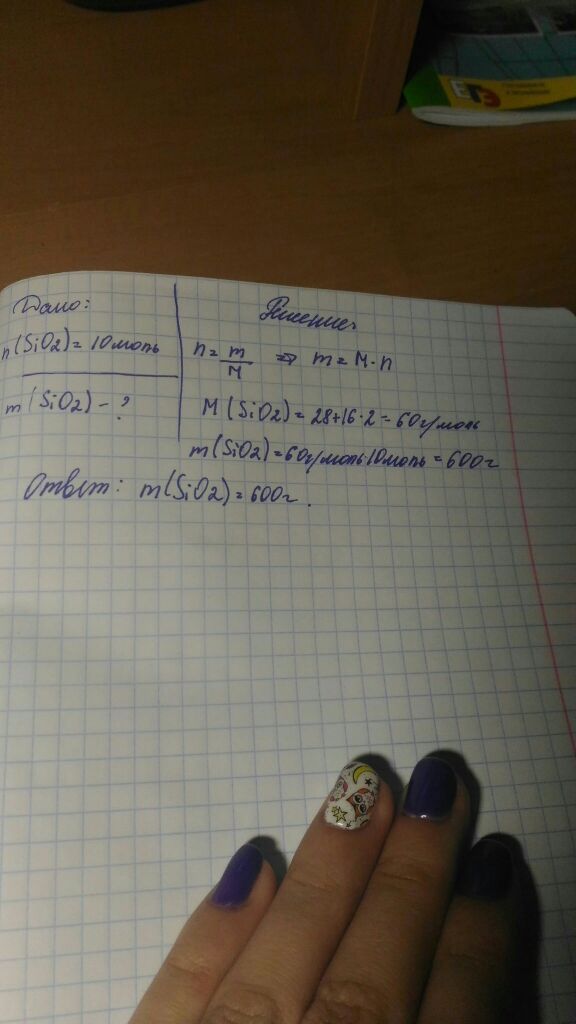 Дано:
n(SiO2) = 10 моль
m(SiO2) - ?
Решение:
n = m/M => m = M·n
M(SiO2) = 28+16·2 = 60г/моль
m(SiO2) = 60г/моль·10моль = 600г
Ответ: m(SiO2) = 600г.
ЕГЭ